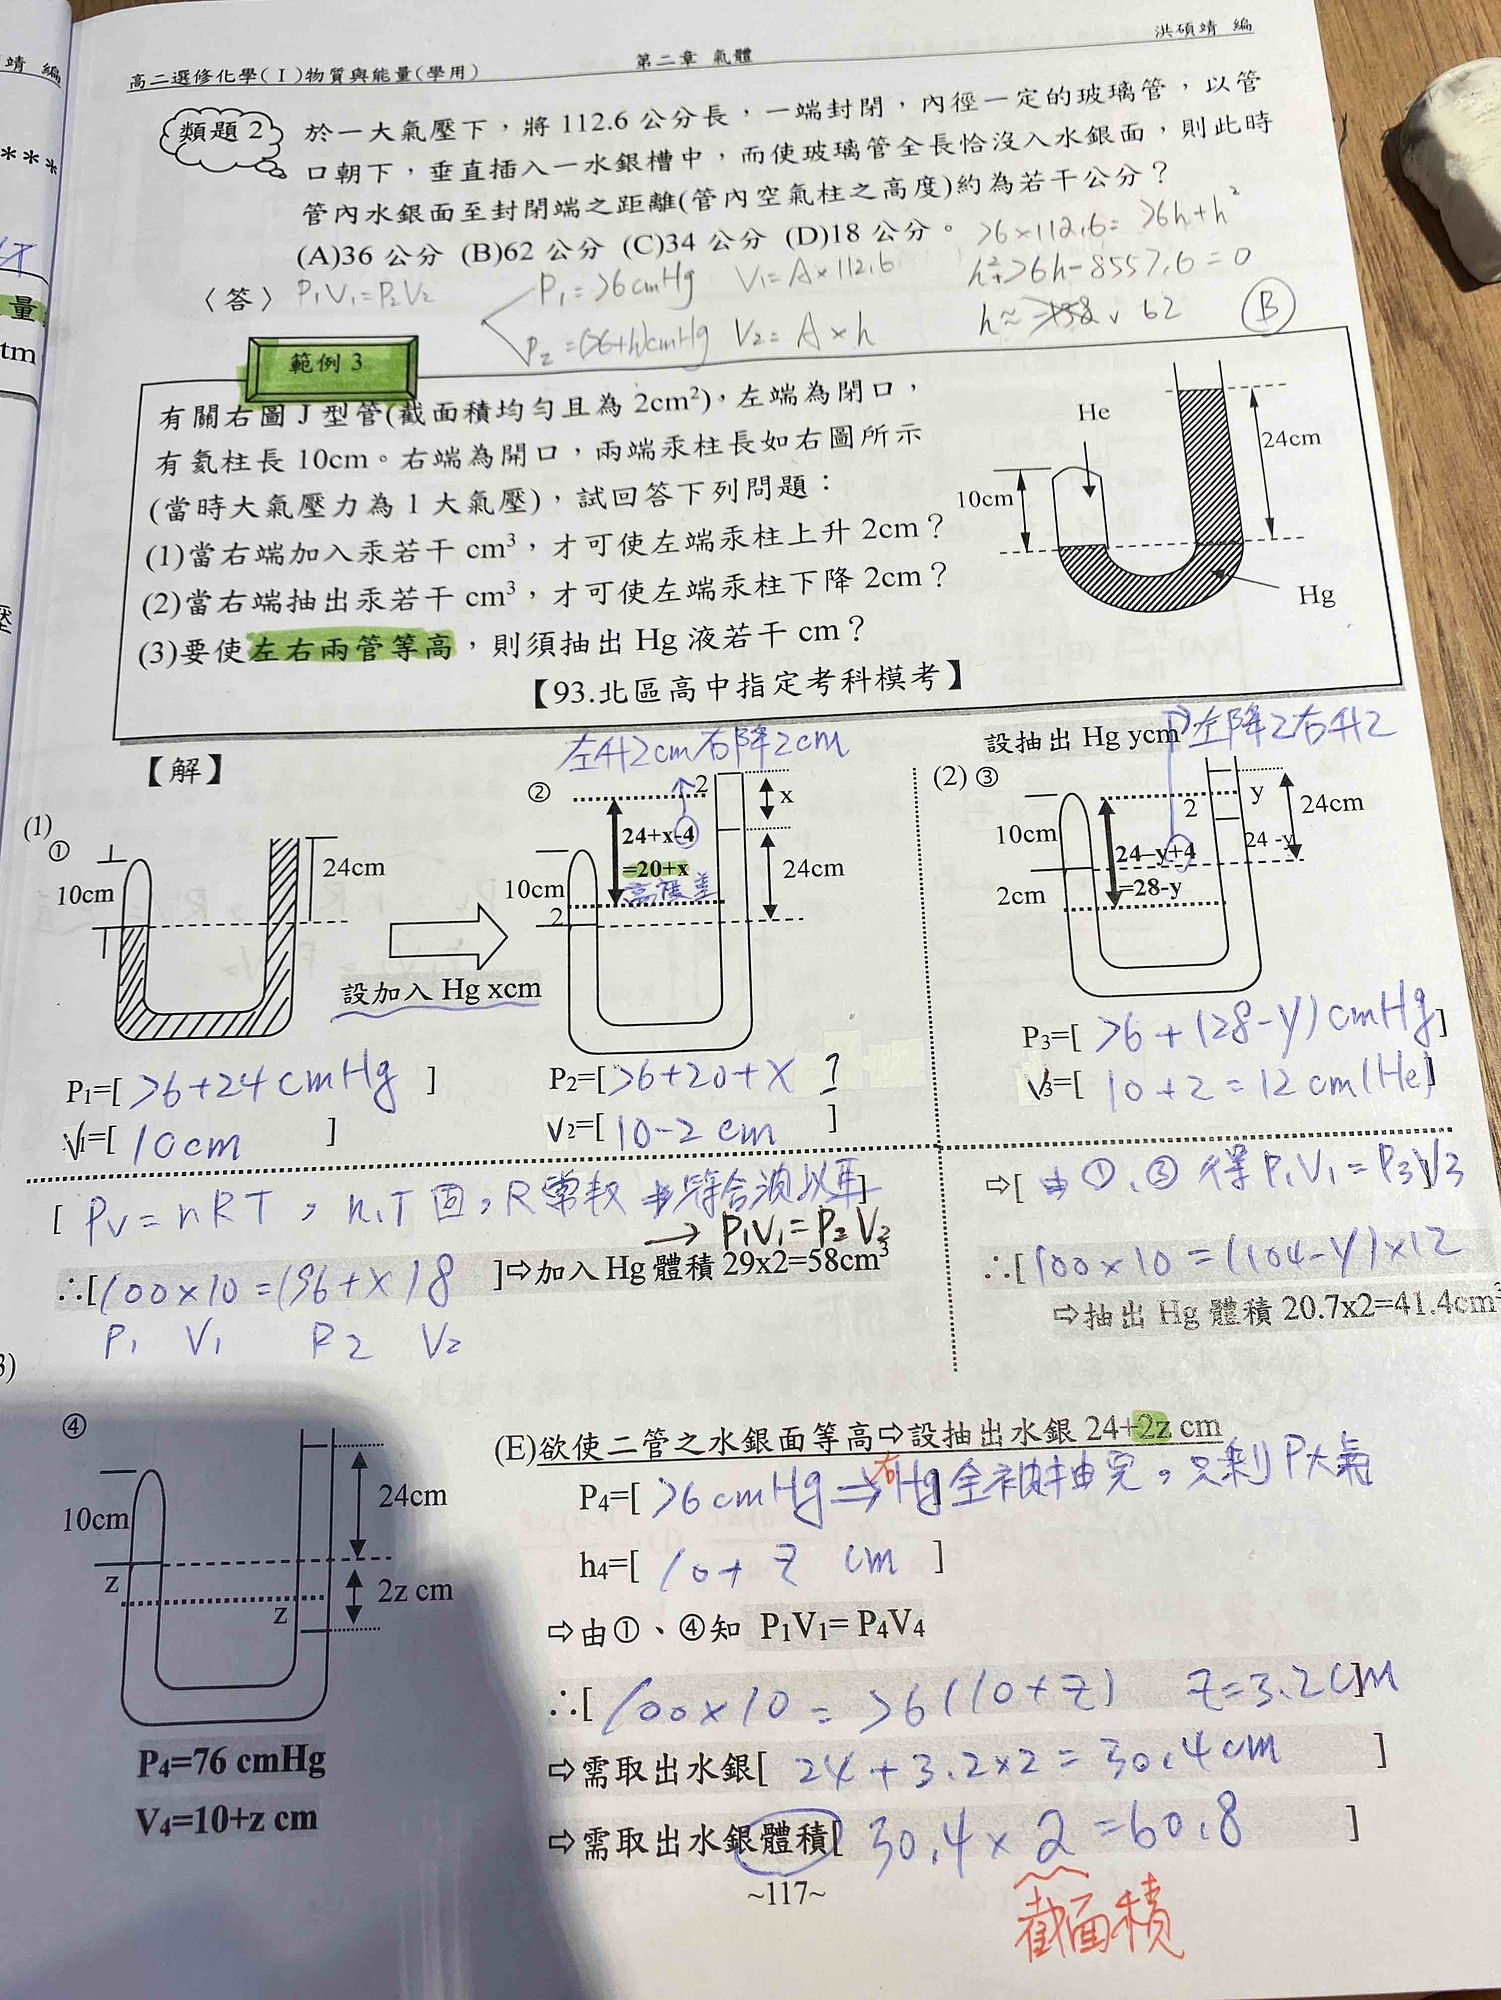 洪碩靖 編
高二選修化學(Ⅰ)物質與能量(學用)
第二章 氣體
靖 編
***
量
tm
類題 2
於一大氣壓下，將 112.6 公分長，一端封閉，內徑一定的玻璃管，以管
口朝下，垂直插入一水銀槽中，而使玻璃管全長恰沒入水銀面，則此時
管內水銀面至封閉端之距離(管內空氣柱之高度)約為若干公分？
(A)36 公分 (B)62 公分 (C)34 公分 (D)18 公分。
76×112.6=76h+h²
〈答〉 P₁V₁=P₂V₂
P₁=76cmHg V₁=A×112.6
h²+76h-8557.6=0
P₂=(76+h)cmHg V₂=A×h
h≈ 62
B
範例 3
有關右圖 J 型管(截面積均勻且為 2cm²)，左端為閉口，
有氦柱長 10cm。右端為開口，兩端汞柱長如右圖所示
(當時大氣壓力為 1 大氣壓)，試回答下列問題：
(1)當右端加入汞若干 cm³，才可使左端汞柱上升 2cm？
(2)當右端抽出汞若干 cm³，才可使左端汞柱下降 2cm？
(3)要使左右兩管等高，則須抽出 Hg 液若干 cm？
【93.北區高中指定考科模考】
He
24cm
10cm
Hg
【解】
左升2cm右降2cm
設抽出 Hg ycm
左降2右升2
(1)
①
10cm
24cm
設加入 Hg xcm
②
2
x
24+x-4
=20+x
高度差
10cm
24cm
2
(2) ③
10cm
2
y
24cm
24-y+4
24-y
=28-y
2cm
P₁=[ 76+24 cmHg ]
V₁=[ 10cm ]
P₂=[76+20+x ]
V₂=[10-2 cm ]
P₃=[ 76+(28-y)cmHg]
V₃=[ 10+2=12cm(He)]
[ PV=nRT，n、T固，R常數 符合波以耳]
→ P₁V₁=P₂V₂
∴[100×10=(96+x)8 ]⇨加入 Hg 體積 29x2=58cm³
P₁ V₁ P₂ V₂
⇨[ 由①、③得P₁V₁=P₃V₃
∴[100×10=(104-y)×12
⇨抽出 Hg 體積 20.7x2=41.4cm³
3)
④
10cm
24cm
z
z
2z cm
P₄=76 cmHg
V₄=10+z cm
(E)欲使二管之水銀面等高⇨設抽出水銀 24+2z cm
P₄=[ 76cmHg⇒右Hg全被抽完，只剩P大氣
h₄=[ 10+z cm ]
⇨由①、④知 P₁V₁= P₄V₄
∴[ 100×10=76(10+z) z=3.2cm]
⇨需取出水銀[ 24+3.2×2=30.4cm ]
⇨需取出水銀體積[ 30.4×2=60.8 ]
~117~
截面積